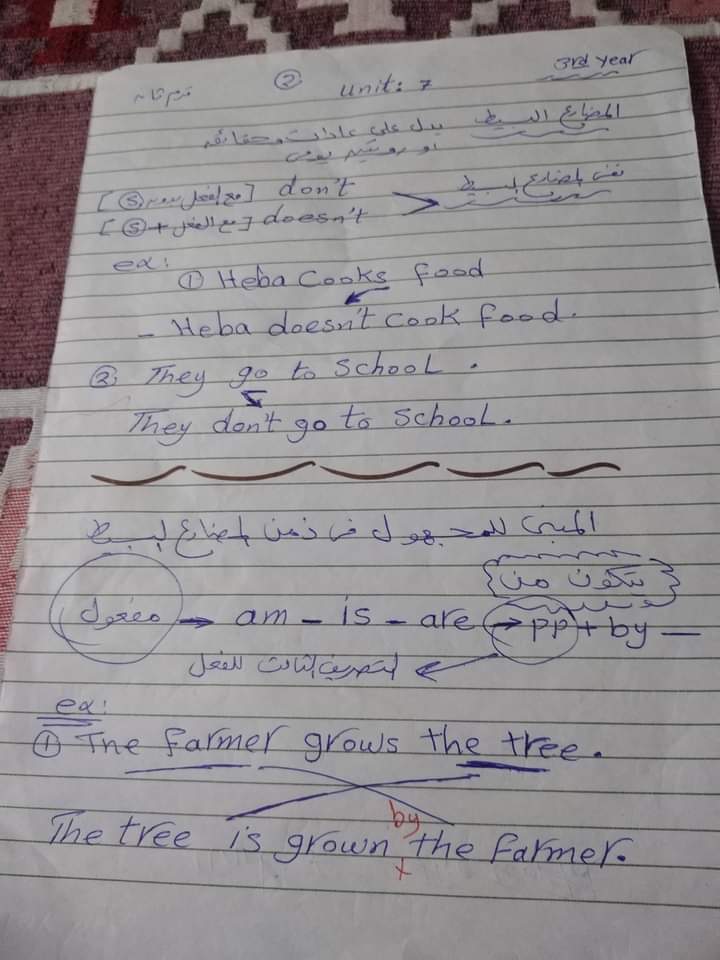 3rd year
② unit: 7
المضارع البسيط يدل على عادات وحقائق
نفى المضارع البسيط
don't [مع الفعل بدون ⓢ]
doesn't [مع الفعل + ⓢ]
ex:
① Heba cooks food
- Heba doesn't cook food.
② They go to school.
They don't go to school.
المبنى للمجهول فى زمن المضارع البسيط
يتكون من
مفعول → am - is - are → pp + by —
التصريف الثالث للفعل
ex:
① The farmer grows the tree.
by
The tree is grown x the farmer.